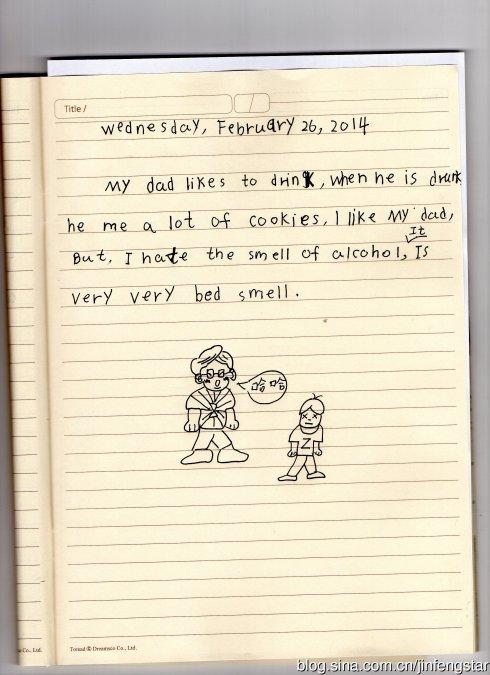 Title /
Wednesday, February 26, 2014
My dad likes to drink, when he is drunk
he me a lot of cookies, I like My dad,
It
But, I hate the smell of alcohol, Is
very very bed smell.
哈哈
Z
se Co., Ltd.
Toread © Dreamsco Co., Ltd.
blog.sina.com.cn/jinfengstar